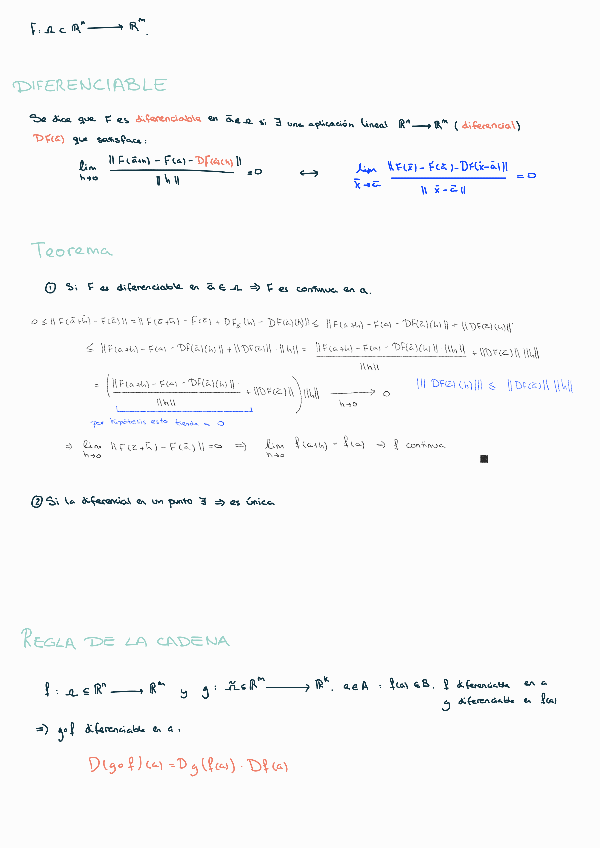 F: Ω ⊂ ℝⁿ ⟶ ℝᵐ.
DIFERENCIABLE
Se dice que F es diferenciable en ā ∈ Ω si ∃ una aplicación lineal ℝⁿ ⟶ ℝᵐ (diferencial)
DF(ā) que satisface:
lim h→0 ||F(ā+h) - F(a) - DF(a)(h)|| / ||h|| = 0 ⟷ lim x̄→ā ||F(x̄) - F(ā) - DF(x̄-ā)|| / ||x̄-ā|| = 0
Teorema
① Si F es diferenciable en ā ∈ Ω ⇒ F es continua en a.
0 ≤ ||F(ā+h̄) - F(ā)|| = ||F(ā+h̄) - F(ā) + DFā(h) - DF(ā)(h)|| ≤ ||F(a+h) - F(a) - DF(ā)(h)|| + ||DF(ā)(h)||
≤ ||F(a+h) - F(a) - DF(ā)(h)|| + ||DF(ā)|| · ||h|| = ||F(a+h) - F(a) - DF(ā)(h)|| · ||h|| / ||h|| + ||DF(ā)|| ||h||
= (||F(a+h) - F(a) - DF(ā)(h)|| / ||h|| + ||DF(ā)||) ||h|| ⟶ h→0 0 ||DF(ā)(h)|| ≤ ||DF(ā)|| ||h||
por hipótesis esto tiende a 0
⇒ lim h→0 ||F(ā+h̄) - F(ā)|| = 0 ⇒ lim h→0 f(a+h) - f(a) ⇒ f continua
② Si la diferencial en un punto ∃ ⇒ es única
REGLA DE LA CADENA
f: Ω ⊆ ℝⁿ ⟶ ℝᵐ y g: Ω̃ ⊆ ℝᵐ ⟶ ℝᵏ, a ∈ A : f(a) ∈ B. f diferenciable en a
g diferenciable en f(a)
⇒ g∘f diferenciable en a:
D(g∘f)(a) = Dg(f(a)) · Df(a)